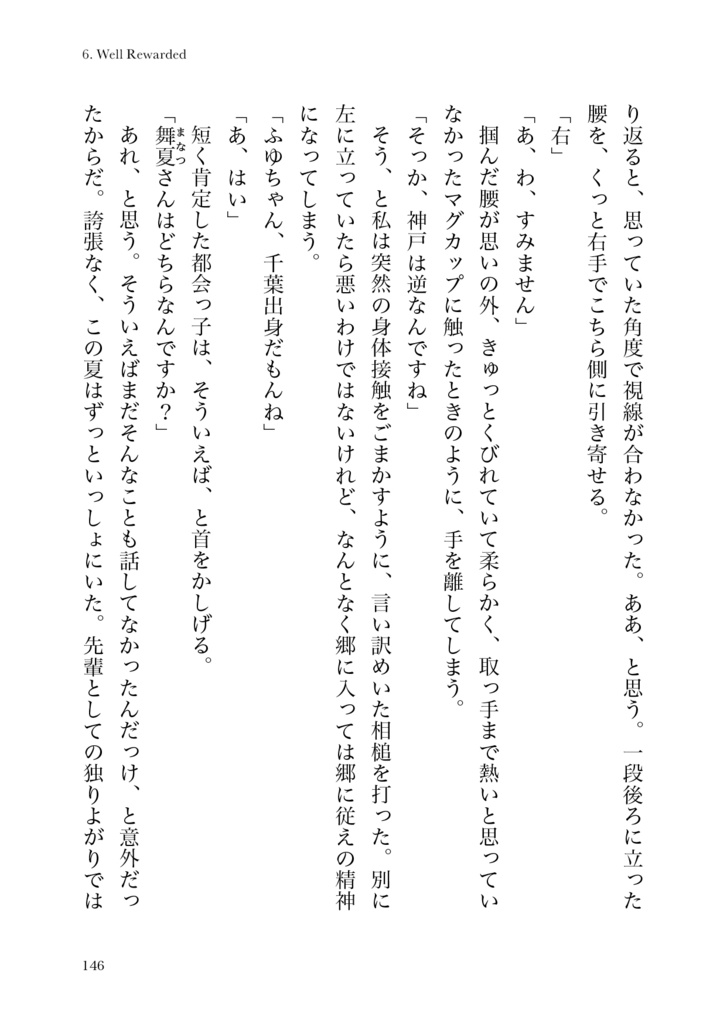 6. Well Rewarded
り返ると、思っていた角度で視線が合わなかった。ああ、と思う。一段後ろに立った
腰を、くっと右手でこちら側に引き寄せる。
「右」
「あ、わ、すみません」
掴んだ腰が思いの外、きゅっとくびれていて柔らかく、取っ手まで熱いと思ってい
なかったマグカップに触ったときのように、手を離してしまう。
「そっか、神戸は逆なんですね」
そう、と私は突然の身体接触をごまかすように、言い訳めいた相槌を打った。別に
左に立っていたら悪いわけではないけれど、なんとなく郷に入っては郷に従えの精神
になってしまう。
「ふゆちゃん、千葉出身だもんね」
「あ、はい」
短く肯定した都会っ子は、そういえば、と首をかしげる。
「舞夏さんはどちらなんですか？」
まなつ
あれ、と思う。そういえばまだそんなことも話してなかったんだっけ、と意外だっ
たからだ。誇張なく、この夏はずっといっしょにいた。先輩としての独りよがりでは
146